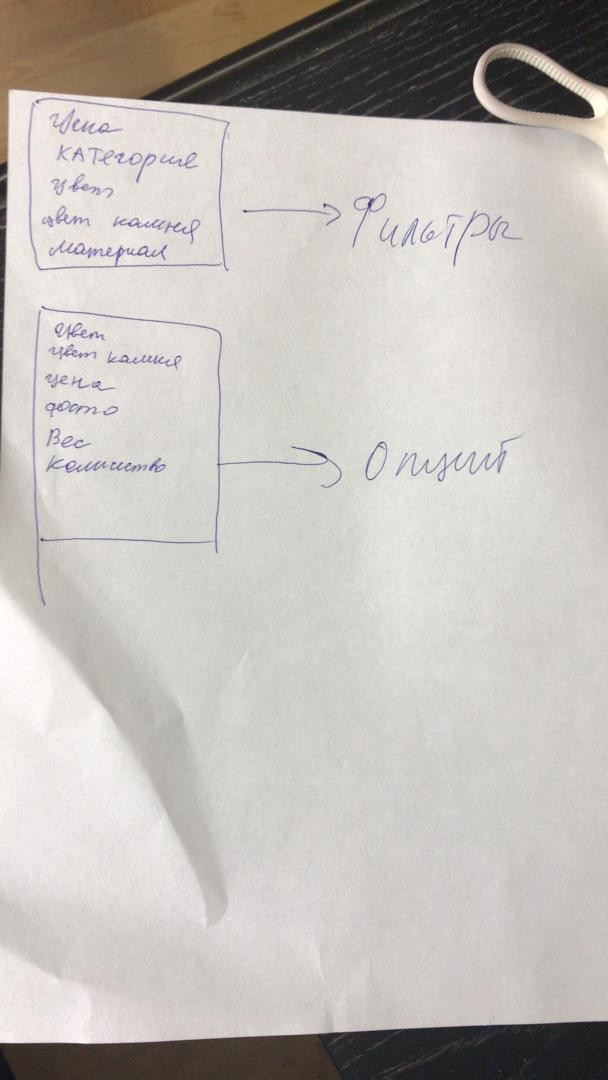 Цена
КАТегория
Цвет
цвет камня
материал
Фильтры
Цвет
Цвет камня
цена
фото
Вес
количество
Опций